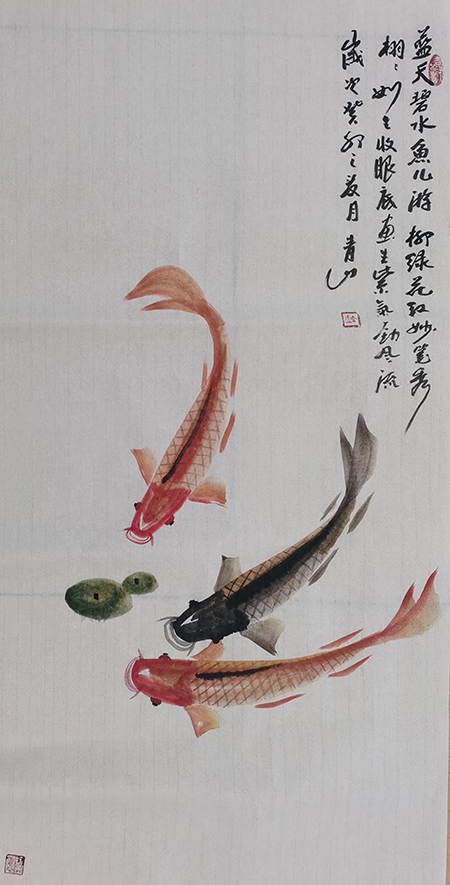 蓝天碧水鱼儿游柳绿花红妙笔秀
栩栩如生收眼底画生紫气劲风流
岁次癸卯之夏月青山